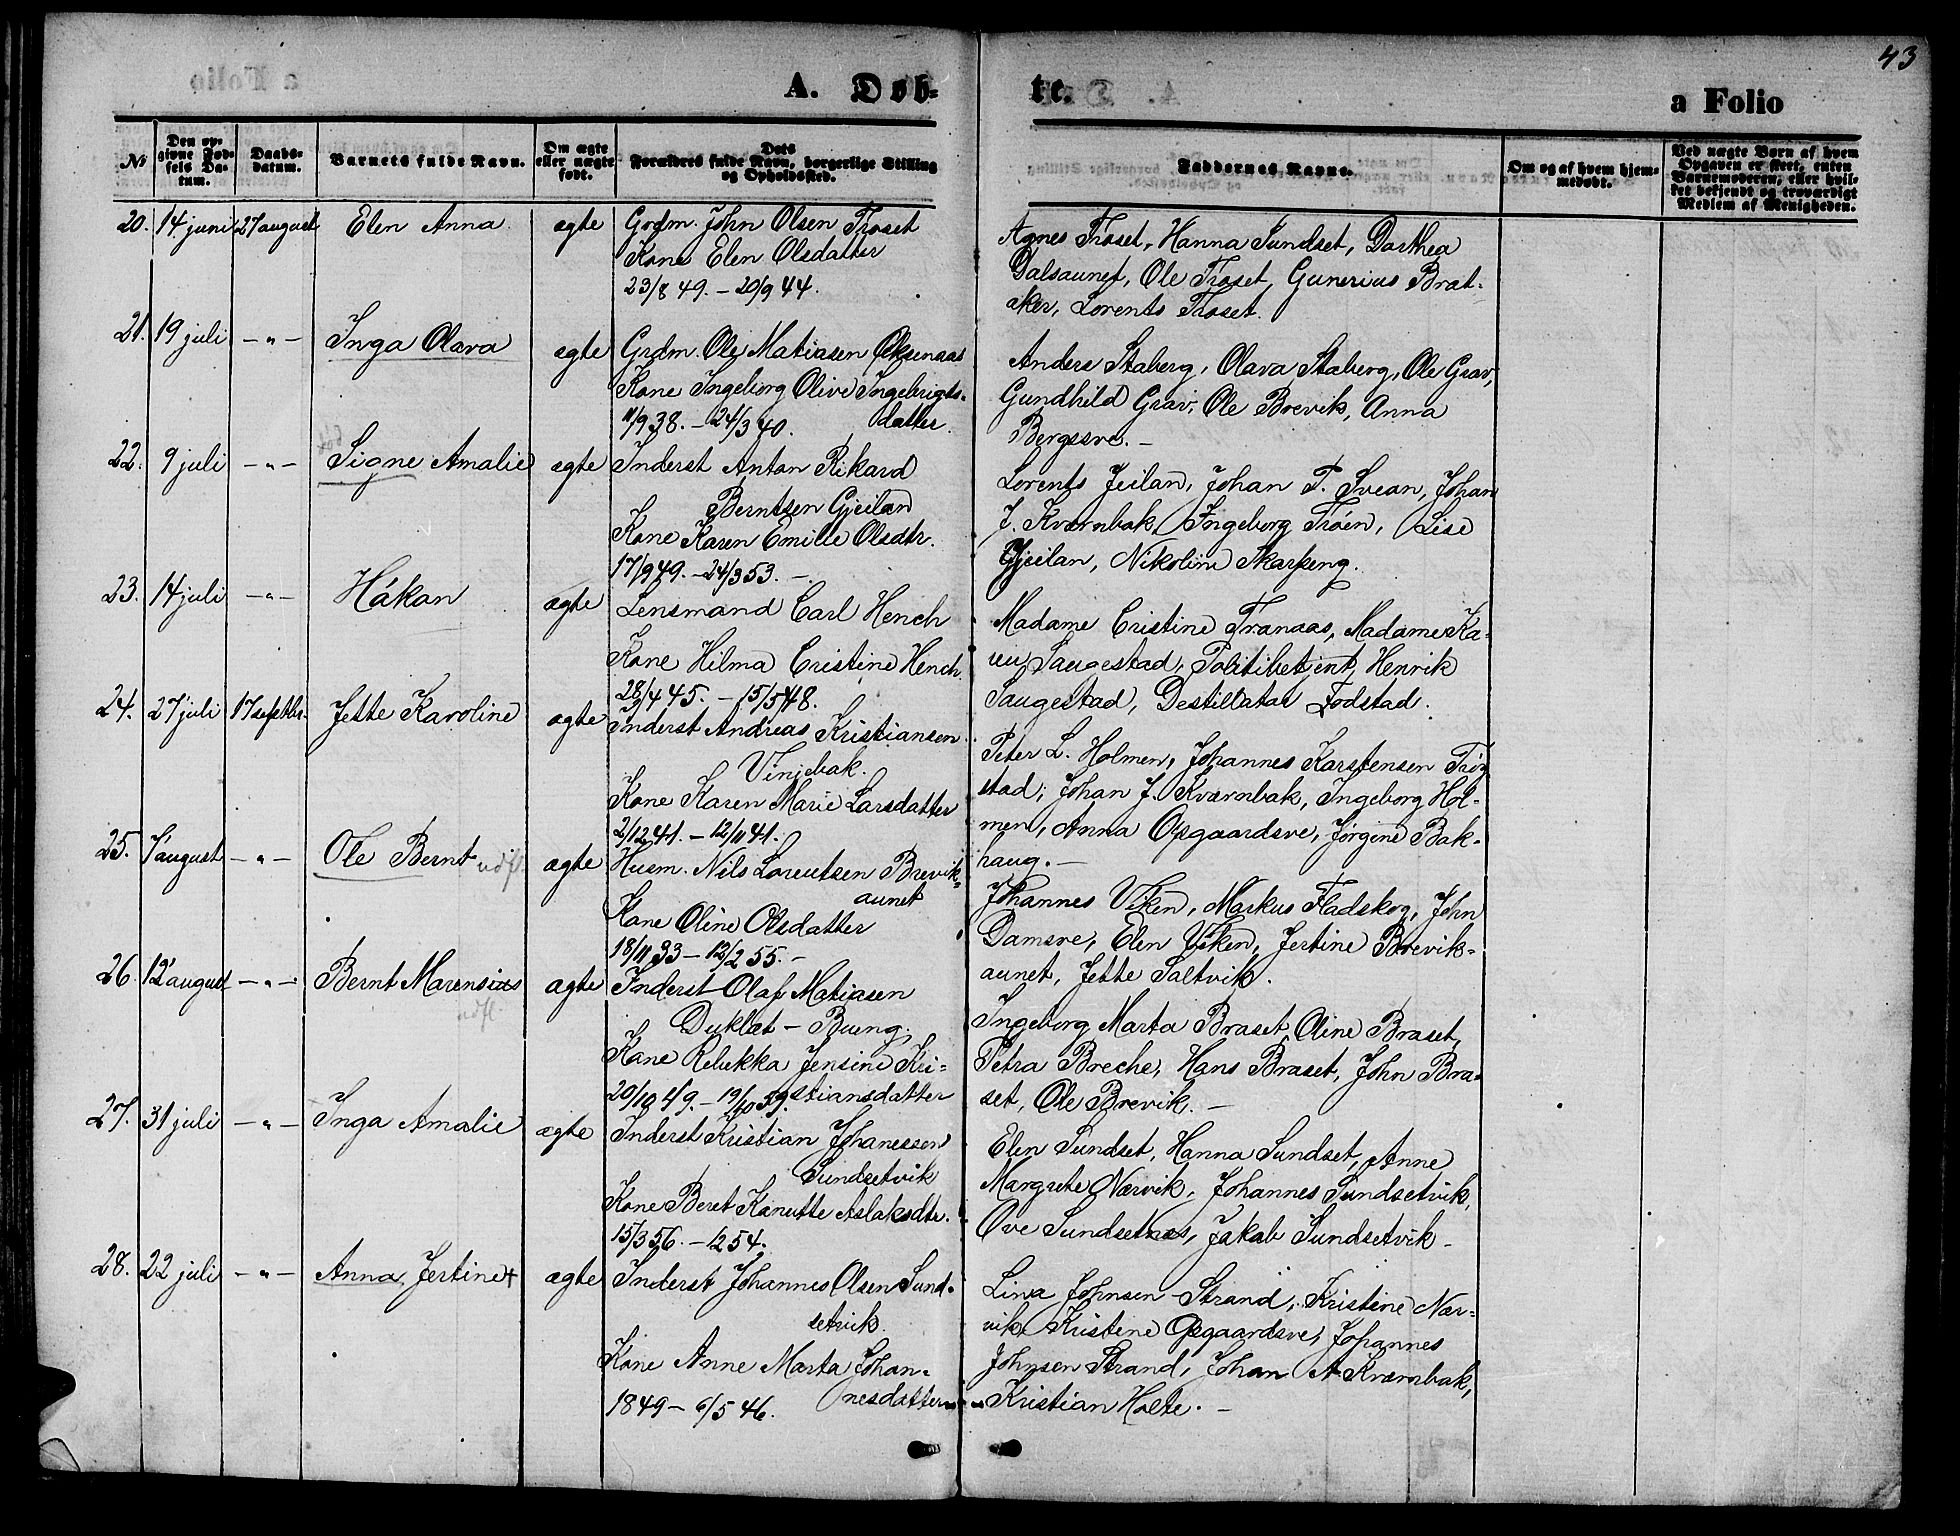 43
A. Døb-
te.
a Folio
No
Den op-
givne Fød-
sels Da-
tum.
Daabs-
datum.
Barnets fulde Navn.
Om ægte
eller uægte
født.
Dets
Forældres fulde Navn, borgerlige Stilling
og Opholdssted.
Faddernes Navne.
Om og af hvem hjem-
medøbt.
Ved uægte Børn af hvem
Opgaven er skeet, enten
Barnemoderen, eller hvil-
ket bekjendt og troværdigt
Medlem af Menigheden.
20. 14 juni 27 august Elen Anna. ægte Grdm. John Olsen Troset
Kone Elen Olsdatter
23/8 49. – 20/9 44.
Agnes Troset, Hanna Sundset, Darthea
Dalsaunet, Ole Troset, Gunerius Brat-
aker, Lorents Troset.
21. 19 juli – " – Inga Olava ægte Grdm. Ole Matiasen Øksenaas
Kone Ingeborg Olive Ingebrigts-
datter.
11/9 38. – 24/3 40.
Anders Staberg, Olava Staberg, Ole Grav,
Gundhild Grav, Ole Brevik, Anna
Bergssve. –
22. 9 juli – " – Signe Amalie ægte Inderst Anton Rikard
Berntsen Gjeilan
Kone Karen Emilie Olsdtr.
17/9 49. – 24/3 53. –
Lorents Jeilan, Johan T. Svean, Johan
J. Kværnbak, Ingeborg Trøen, Lise
Gjeilan, Nikoline Skarpeng.
23. 14 juli – " – Håkan ægte Lensmand Carl Hench
Kone Hilma Cristine Hench.
28/4 45. – 15/5 48.
Madame Cristine Tranaas, Madame Ka-
ren Saugestad, Politibetjent Henrik
Saugestad, Destillatør Fodstad.
24. 27 juli 17 septbr. Jette Karoline ægte Inderst Andreas Kristiansen
Vinjebak.
Kone Karen Marie Larsdatter
2/12 41. – 12/11 41.
Peter L. Holmen, Johannes Karstensen Trøg
stad, Johan J. Kværnbak, Ingeborg Hol-
men, Anna Opgaardsve, Jørgine Bak-
haug. –
25. 7 august – " – Ole Bernt udfl. ægte Husm. Nils Lorentsen Brevik-
aunet
Kone Oline Olsdatter
18/11 33 – 12/2 55. –
Johannes Viken, Markus Fladskog, John
Damsve, Elen Viken, Jertine Brevik-
aunet, Jette Saltvik.
26. 12 august – " – Bernt Marensius udfl. ægte Inderst Olaf Matiasen
Duklæt – Bueng.
Kone Rebekka Jensine Kri-
stiansdatter
20/10 49. – 19/10 59.
Ingeborg Marta Braset, Oline Braset,
Petra Breche, Hans Braset, John Bra-
set, Ole Brevik. –
27. 31 juli – " – Inga Amalie ægte Inderst Kristian Johanessen
Sundsetvik
Kone Beret Kanutte Aslaksdtr.
15/3 56. – 1254.
Elen Sundset, Hanna Sundset, Anne
Margrete Nærvik, Johannes Sundsetvik,
Ove Sundsetnes, Jakob Sundsetvik –
28. 22 juli – " – Anna Jertine + ægte Inderst Johannes Olsen Sund-
setvik.
Kone Anne Marta Johan-
nesdatter
1849 – 6/5 46.
Lina Johnsen Strand, Kristine Nær-
vik, Kristene Opgaardsve, Johannes
Johnsen Strand, Johan A Kværnbak,
Kristian Holte. –